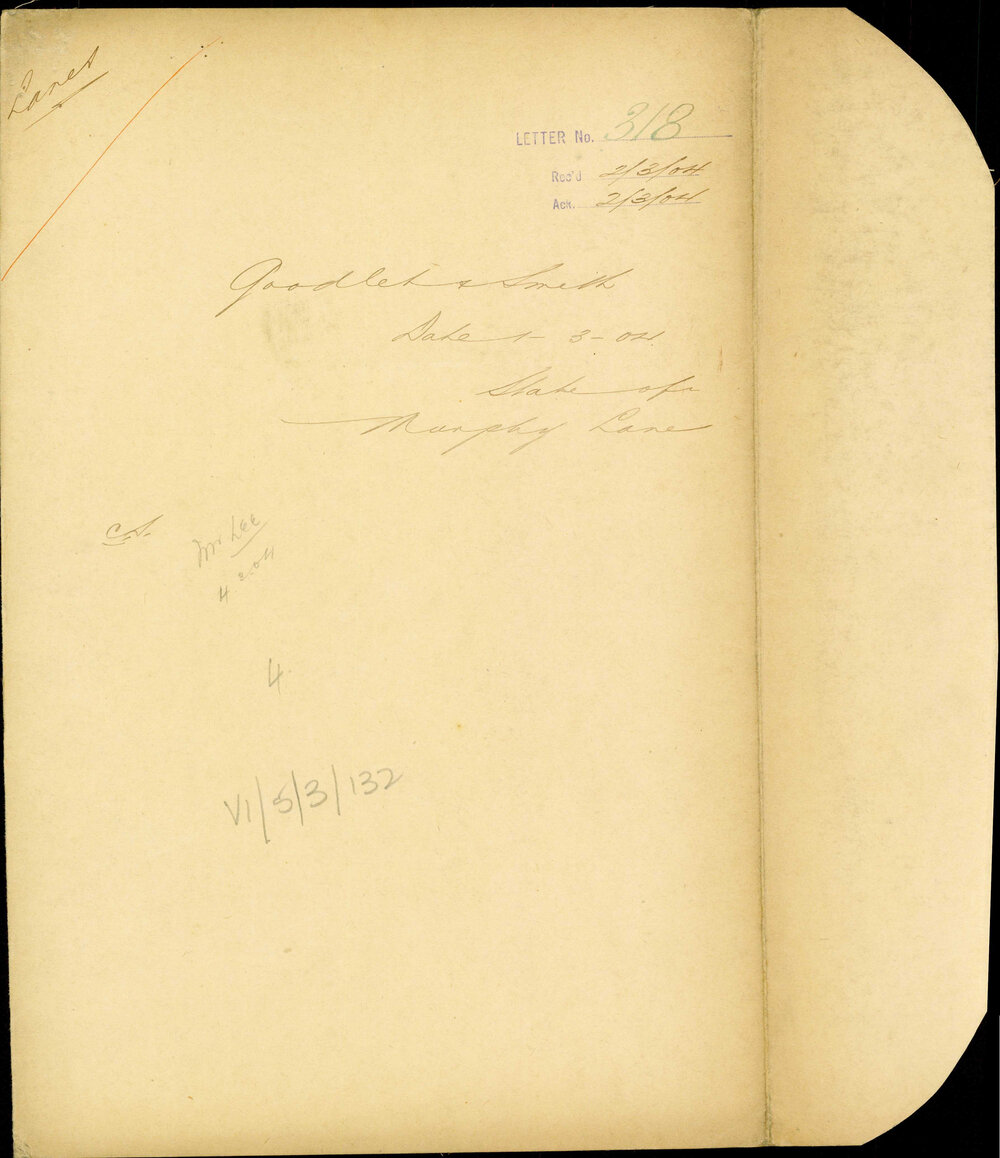 Lanes
LETTER No. 318
Rec'd 2/3/04
Ack. 2/3/04
Goodlet & Smith
Date 1-3-04
State of
Murphy Lane
Mr Lee
4.3.04
4.
VI/5/3/132